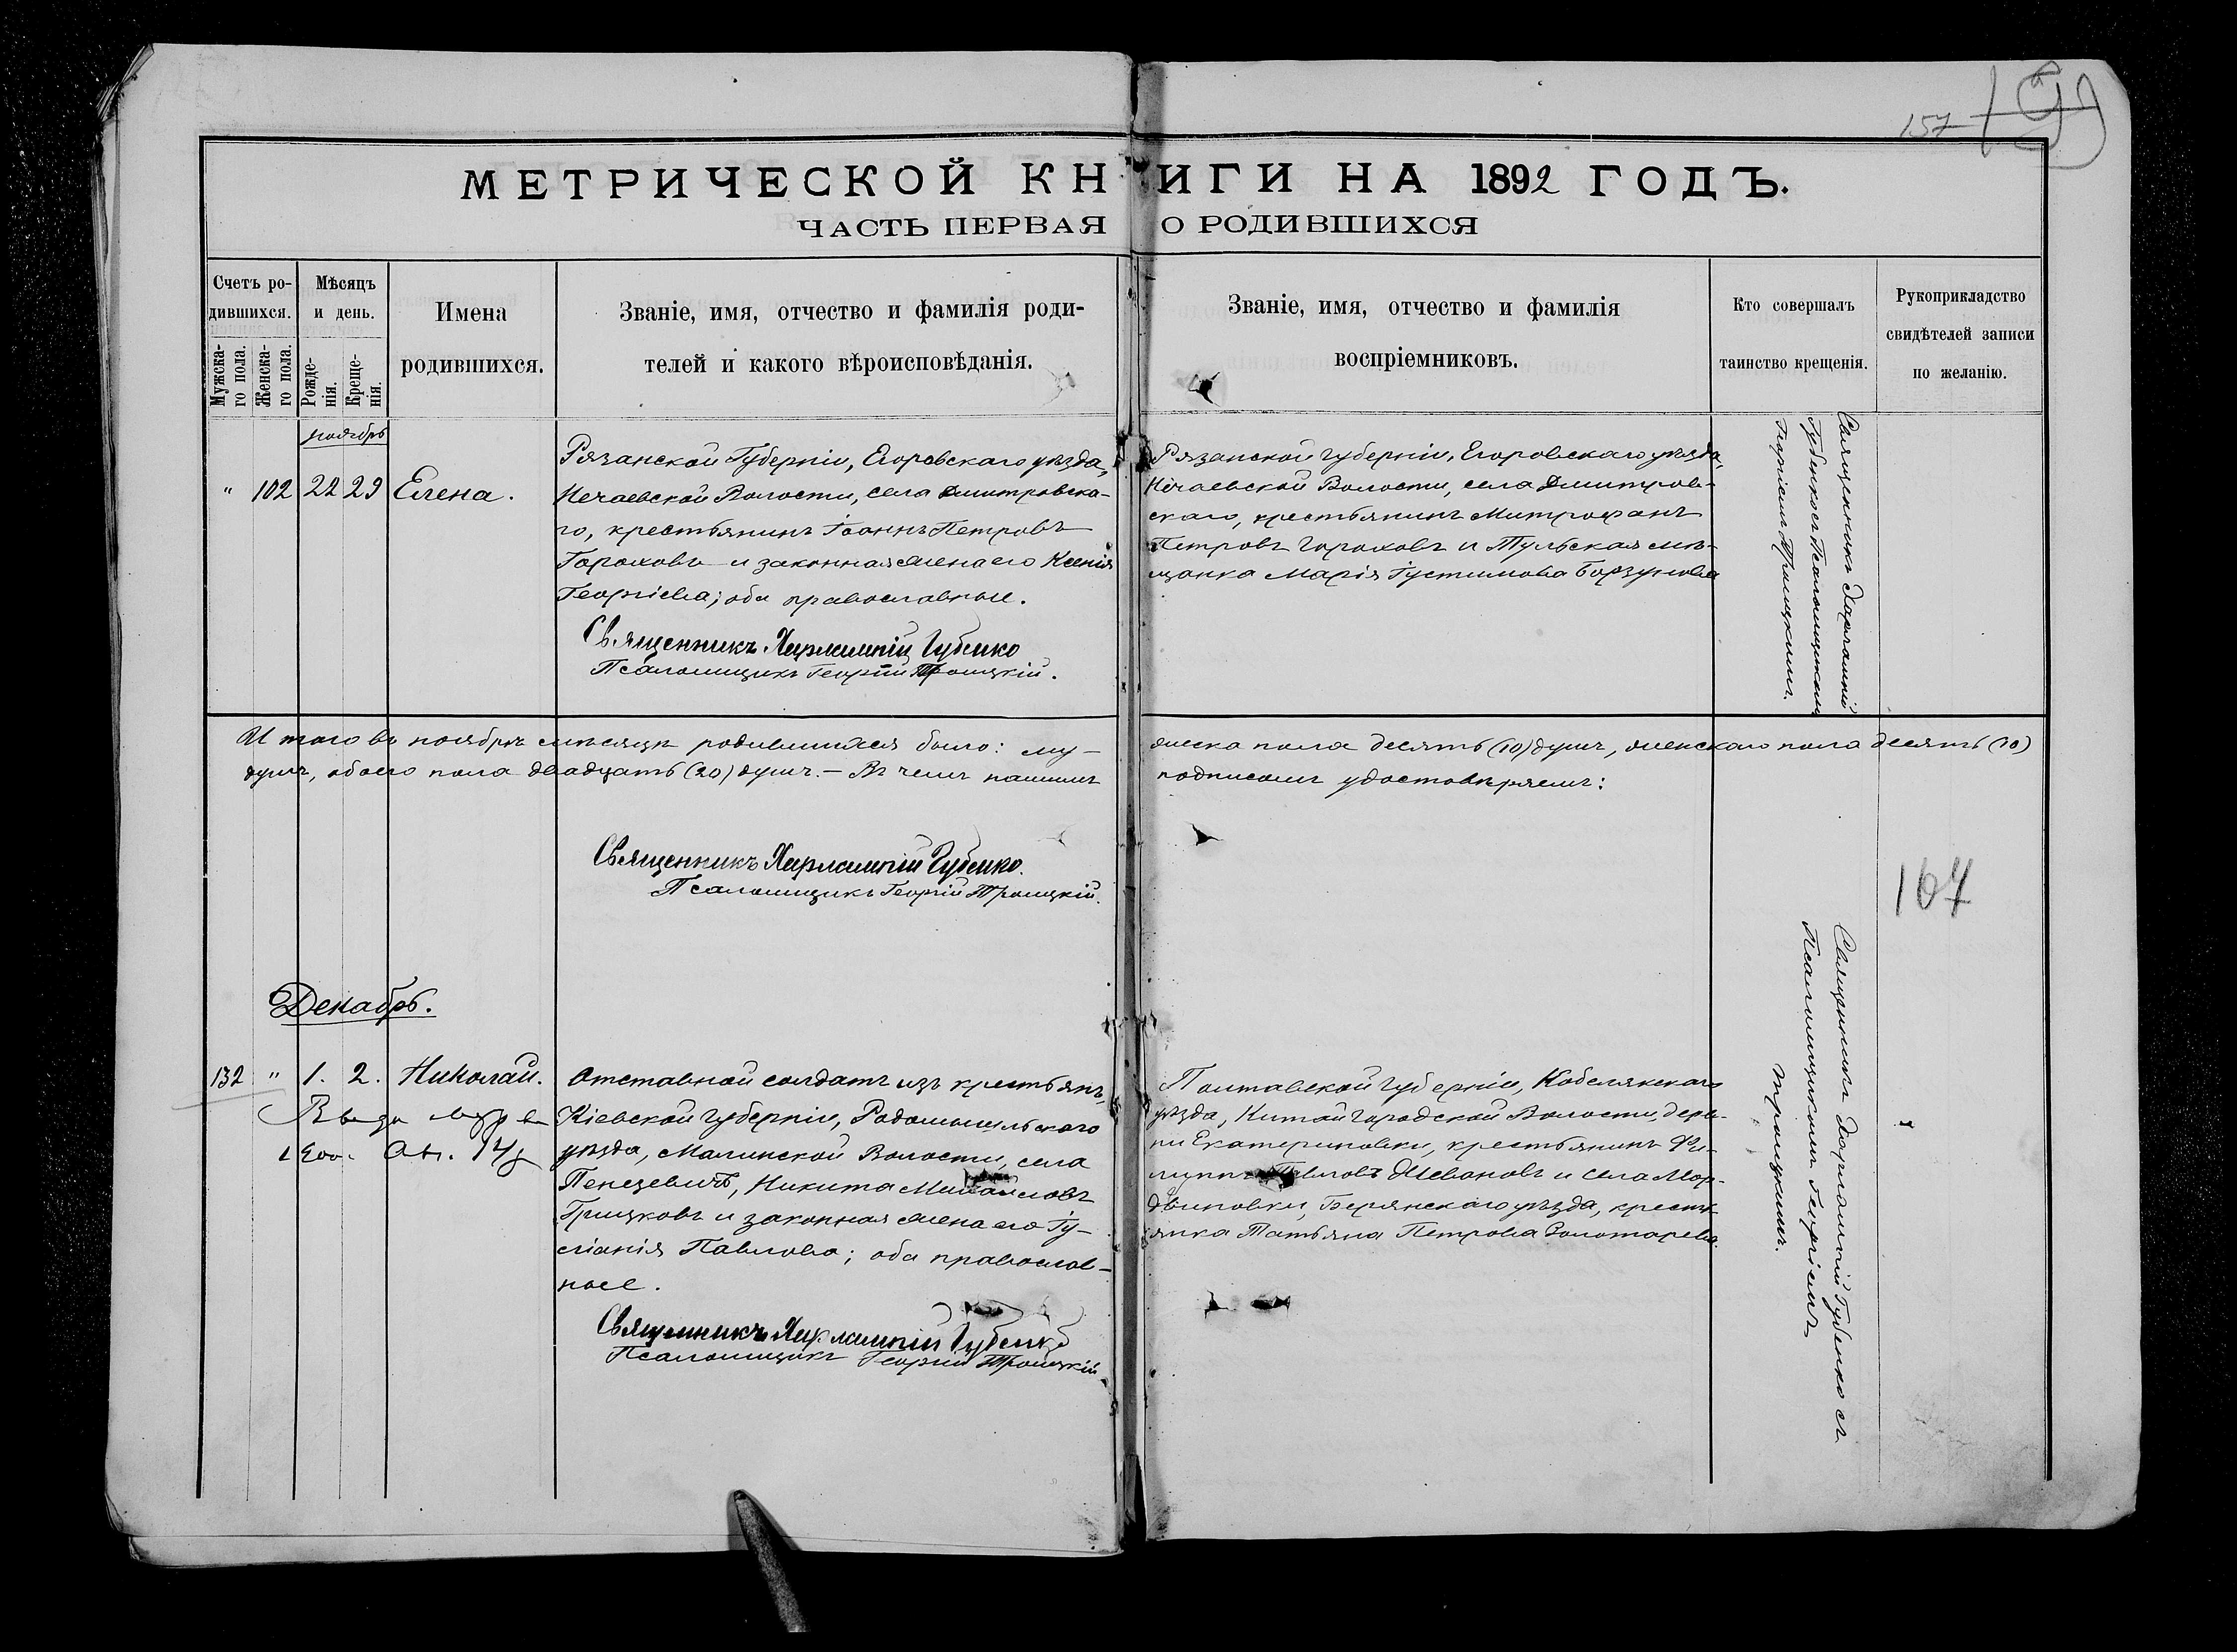 157 199
МЕТРИЧЕСКОЙ КНИГИ НА 1892 ГОДЪ.
ЧАСТЬ ПЕРВАЯ О РОДИВШИХСЯ
Счетъ ро-
дившихся.
Мужска-
го пола.
Женска-
го пола.
Мѣсяцъ
и день.
Рожде-
нія.
Креще-
нія.
Имена
родившихся.
Званіе, имя, отчество и фамилія роди-
телей и какого вѣроисповѣданія.
Званіе, имя, отчество и фамилія
воспріемниковъ.
Кто совершалъ
таинство крещенія.
Рукоприкладство
свидѣтелей записи
по желанію.
ноябрь
" 102 22 29 Елена.
Рязанской Губерніи, Егоровскаго уѣзда,
Нечаевской Волости, села Дмитровска-
го, крестьянинъ Іоаннъ Петровъ
Гороховъ и законная жена его Ксенія
Георгіева; оба православные.
Священникъ Харлампій Губенко
Псаломщикъ Георгій Троицкій.
Рязанской губерніи, Егоровскаго уѣзда,
Нечаевской Волости, села Дмитров-
скаго, крестьянинъ Митрофанъ
Петровъ Гороховъ и Тульская мѣ-
щанка Марія Іустинова Борзунова
Священникъ Харлампій
Губенко съ Псаломщикомъ
Георгіемъ Троицкимъ.
Итого въ ноябрѣ мѣсяцѣ родившихся было: му-
жеска пола десять (10) душъ, женскаго пола десять (10)
душъ, обоего пола двадцать (20) душъ. – Въ чемъ нашимъ
подписомъ удостовѣряемъ:
Священникъ Харлампій Губенко.
Псаломщикъ Георгій Троицкій.
167
Декабрь.
132 " 1. 2. Николай.
Отставной солдатъ изъ крестьянъ,
Кіевской губерніи, Радомысльскаго
уѣзда, Малинской Волости, села
Пенезевичъ, Никита Михайловъ
Грицковъ и законная жена его Іу-
сланія Павлова; оба православ-
ные.
Священникъ Харлампій Губенко
Псаломщикъ Георгій Троицкій.
Полтавской губерніи, Кобелякскаго
уѣзда, Китайгородской Волости, дерев-
ни Екатериновки, крестьянинъ Фи-
липпъ Павловъ Ивановъ и села Мор-
двиновки, Бердянскаго уѣзда, кресть-
янка Татьяна Петрова Золотарева.
Священникъ Харлампій Губенко съ
Псаломщикомъ Георгіемъ
Троицкимъ.